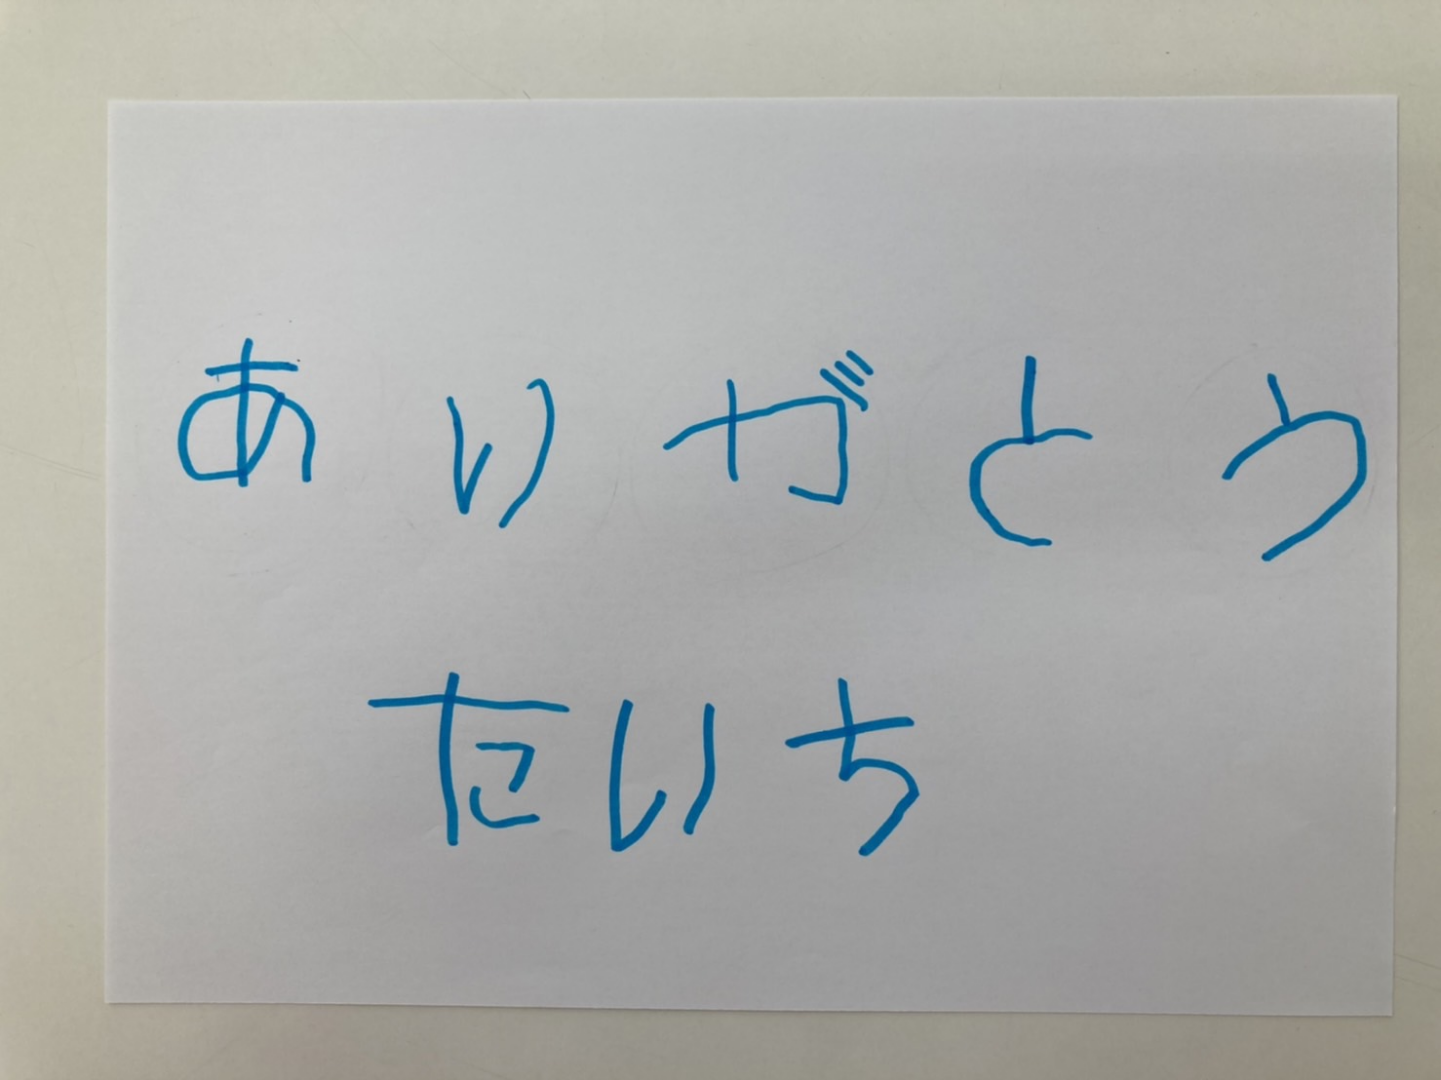 ありがとう
たいち